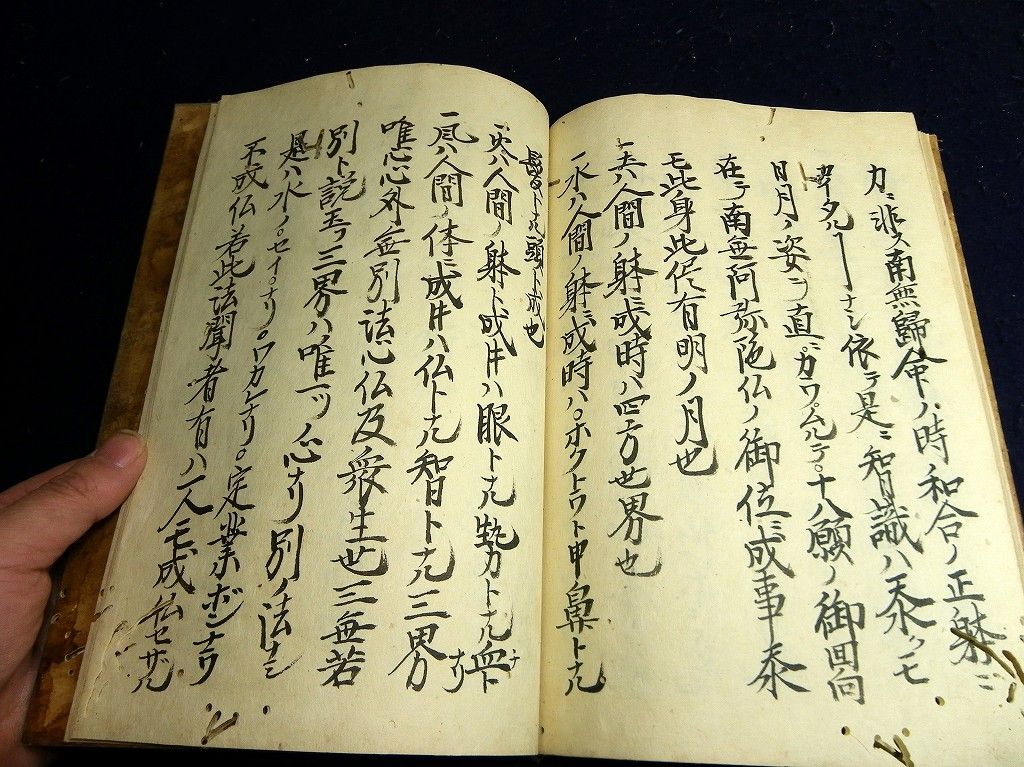 力ニ非ズ南無歸命ノ時和合ノ正躰ニ
ナシ依テ是ニ智識ハ天水クモ
日月ノ姿ヲ直ニガワムルテ。十八願ノ御回向
在テ南無阿弥陀仏ノ御位ニ成事泰
モ此身此侭有明ノ月也
一 ハ人間ノ躰ニ成時ハ四方世界也
一水ハ人間ノ躰ニ成時ハ。ホクトワト申鼻トナル
トナル頭ト成也
一火ハ人間ノ躰ト成井ハ眼トナル勢力トナル血ト
一風ハ人間ノ体ニ成井ハ仏トナル智トナル三界
ナリ
唯心心外無別法心仏及衆生也三無若
別ト説玉フ三界ハ唯一ツノ心ナリ別ノ法ナシ
是ハ水ノ。セイ。ナリ。ワカルナリ。定業ボンナウ
不成仏若此法聞者有ハ一人モ成仏セザル